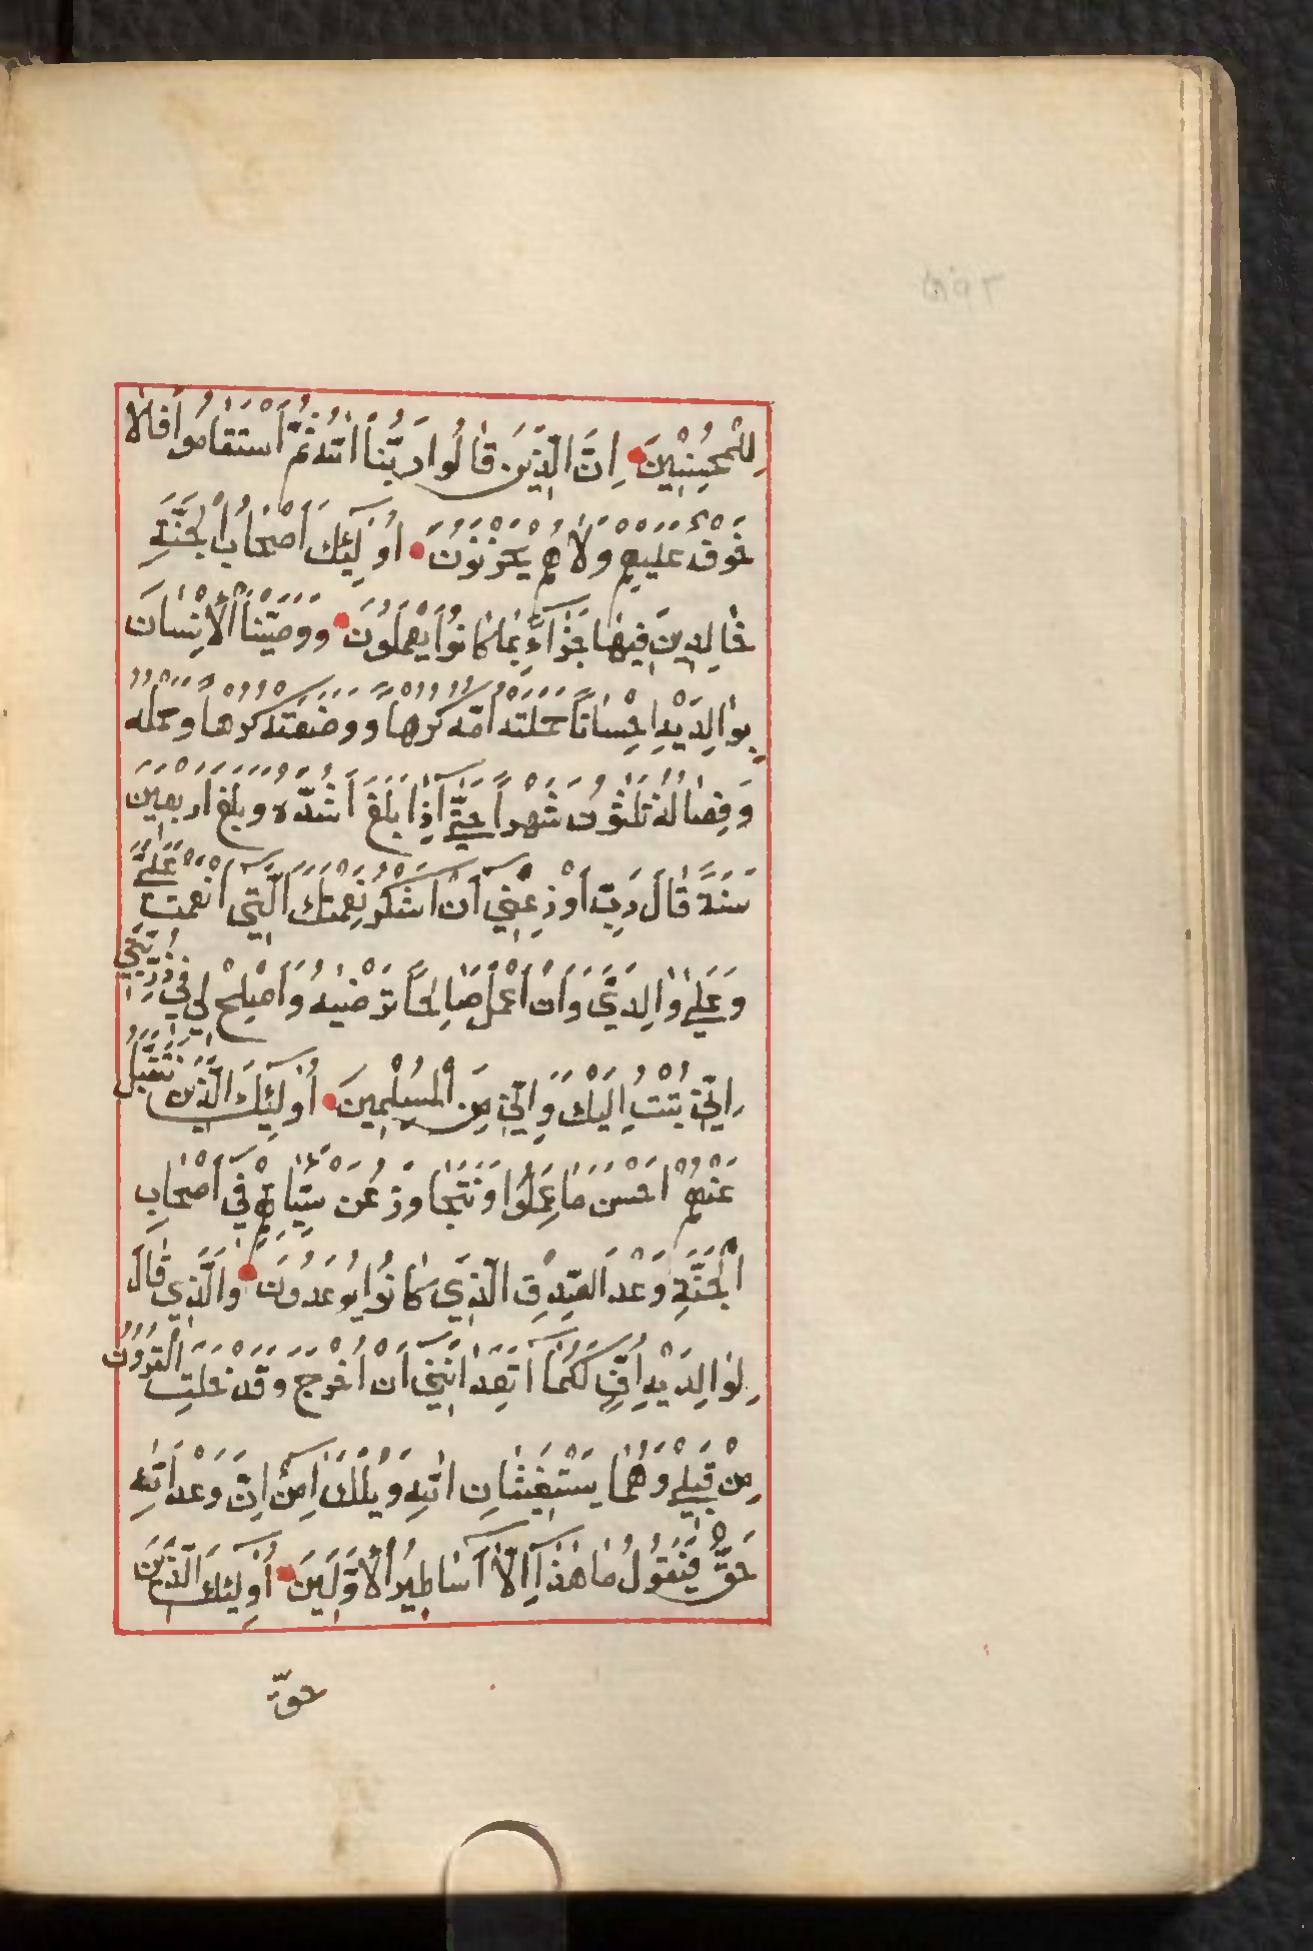 لِلْمُحْسِنِينَ اِنَّ الَّذِينَ قَالُوا رَبُّنَا اللّٰهُ ثُمَّ اسْتَقَامُوا فَلَا
خَوْفٌ عَلَيْهِمْ وَلَا هُمْ يَحْزَنُونَ اُولٰٓئِكَ اَصْحَابُ الْجَنَّةِ
خَالِدِينَ فِيهَا جَزَآءً بِمَا كَانُوا يَعْمَلُونَ وَوَصَّيْنَا الْاِنْسَانَ
بِوَالِدَيْهِ اِحْسَانًا حَمَلَتْهُ اُمُّهُ كُرْهًا وَوَضَعَتْهُ كُرْهًا وَحَمْلُهُ
وَفِصَالُهُ ثَلٰثُونَ شَهْرًا حَتّٰٓى اِذَا بَلَغَ اَشُدَّهُ وَبَلَغَ اَرْبَعِينَ
سَنَةً قَالَ رَبِّ اَوْزِعْنِٓي اَنْ اَشْكُرَ نِعْمَتَكَ الَّتِٓي اَنْعَمْتَ عَلَيَّ
وَعَلٰى وَالِدَيَّ وَاَنْ اَعْمَلَ صَالِحًا تَرْضٰيهُ وَاَصْلِحْ لِي فِي ذُرِّيَّتِي
اِنِّي تُبْتُ اِلَيْكَ وَاِنِّي مِنَ الْمُسْلِمِينَ اُولٰٓئِكَ الَّذِينَ نَتَقَبَّلُ
عَنْهُمْ اَحْسَنَ مَا عَمِلُوا وَنَتَجَاوَزُ عَنْ سَيِّئَاتِهِمْ فِٓي اَصْحَابِ
الْجَنَّةِ وَعْدَ الصِّدْقِ الَّذِي كَانُوا يُوعَدُونَ وَالَّذِي قَالَ
لِوَالِدَيْهِ اُفٍّ لَكُمَٓا اَتَعِدَانِنِٓي اَنْ اُخْرَجَ وَقَدْ خَلَتِ الْقُرُونُ
مِنْ قَبْلِي وَهُمَا يَسْتَغِيثَانِ اللّٰهَ وَيْلَكَ اٰمِنْ اِنَّ وَعْدَ اللّٰهِ
حَقٌّ فَيَقُولُ مَا هٰذَٓا اِلَّٓا اَسَاطِيرُ الْاَوَّلِينَ اُولٰٓئِكَ الَّذِينَ
حَقَّ